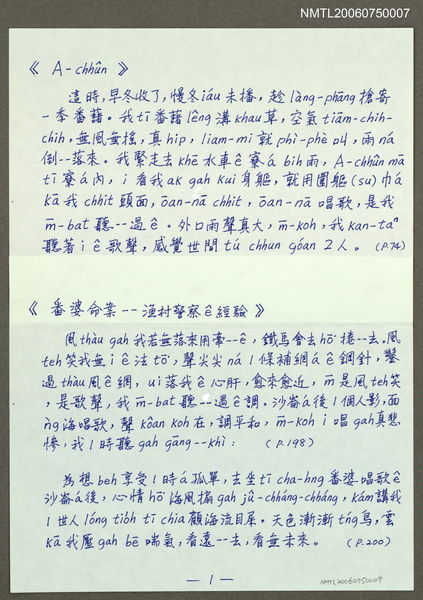 NMTL20060750007
《 A-chhûn 》
這時,早冬收了,慢冬iáu未播,趁làng-phāng搶寄
一季番藷。我tī番藷lêng溝khau草,空氣tiām-chih-
chih,無風無搖,真hip,liam-mi就phì-phè叫,雨ná
倒--落來。我緊走去khē水車ê寮á bih雨,A-chhûn mā
tī寮á內,i看我ak gah kui身軀,就用圍軀(su)巾á
kā我chhit頭面,ōan-nā chhit,ōan-nā唱歌,是我
m̄-bat聽--過ê。外口雨聲真大,m̄-koh,我kan-taⁿ
聽著i ê歌聲,感覺世間tú chhun góan 2人。(P.74)
《番婆命案--漁村警察ê經驗》
風thàu gah我若無落來用牽--ê,鐵馬會去hō͘捲--去。風
teh笑我無i ê法tō͘,聲尖尖ná 1條補網á ê鋼針,鑿
過thàu風ê網,ui落我ê心肝,愈來愈近,m̄是風teh笑
,是歌聲,我m̄-bat聽--過ê調。沙崙á後1個人影,面
ǹg海唱歌,聲kôan koh在,調平和,m̄-koh i唱gah真悲
慘,我1時聽gah gāng--khì:(P.198)
為想beh享受1時á孤單,去坐tī cha-hng番婆唱歌ê
沙崙á後,心情hō͘海風搧gah jû-chháng-chháng,kám講我
1世人lóng tio̍h tī chia顧海流目屎。天色漸漸tńg烏,雲
kā我壓gah bē喘氣,看遠--去,看無未來。(P.200)
— 1 —
NMTL20060750007